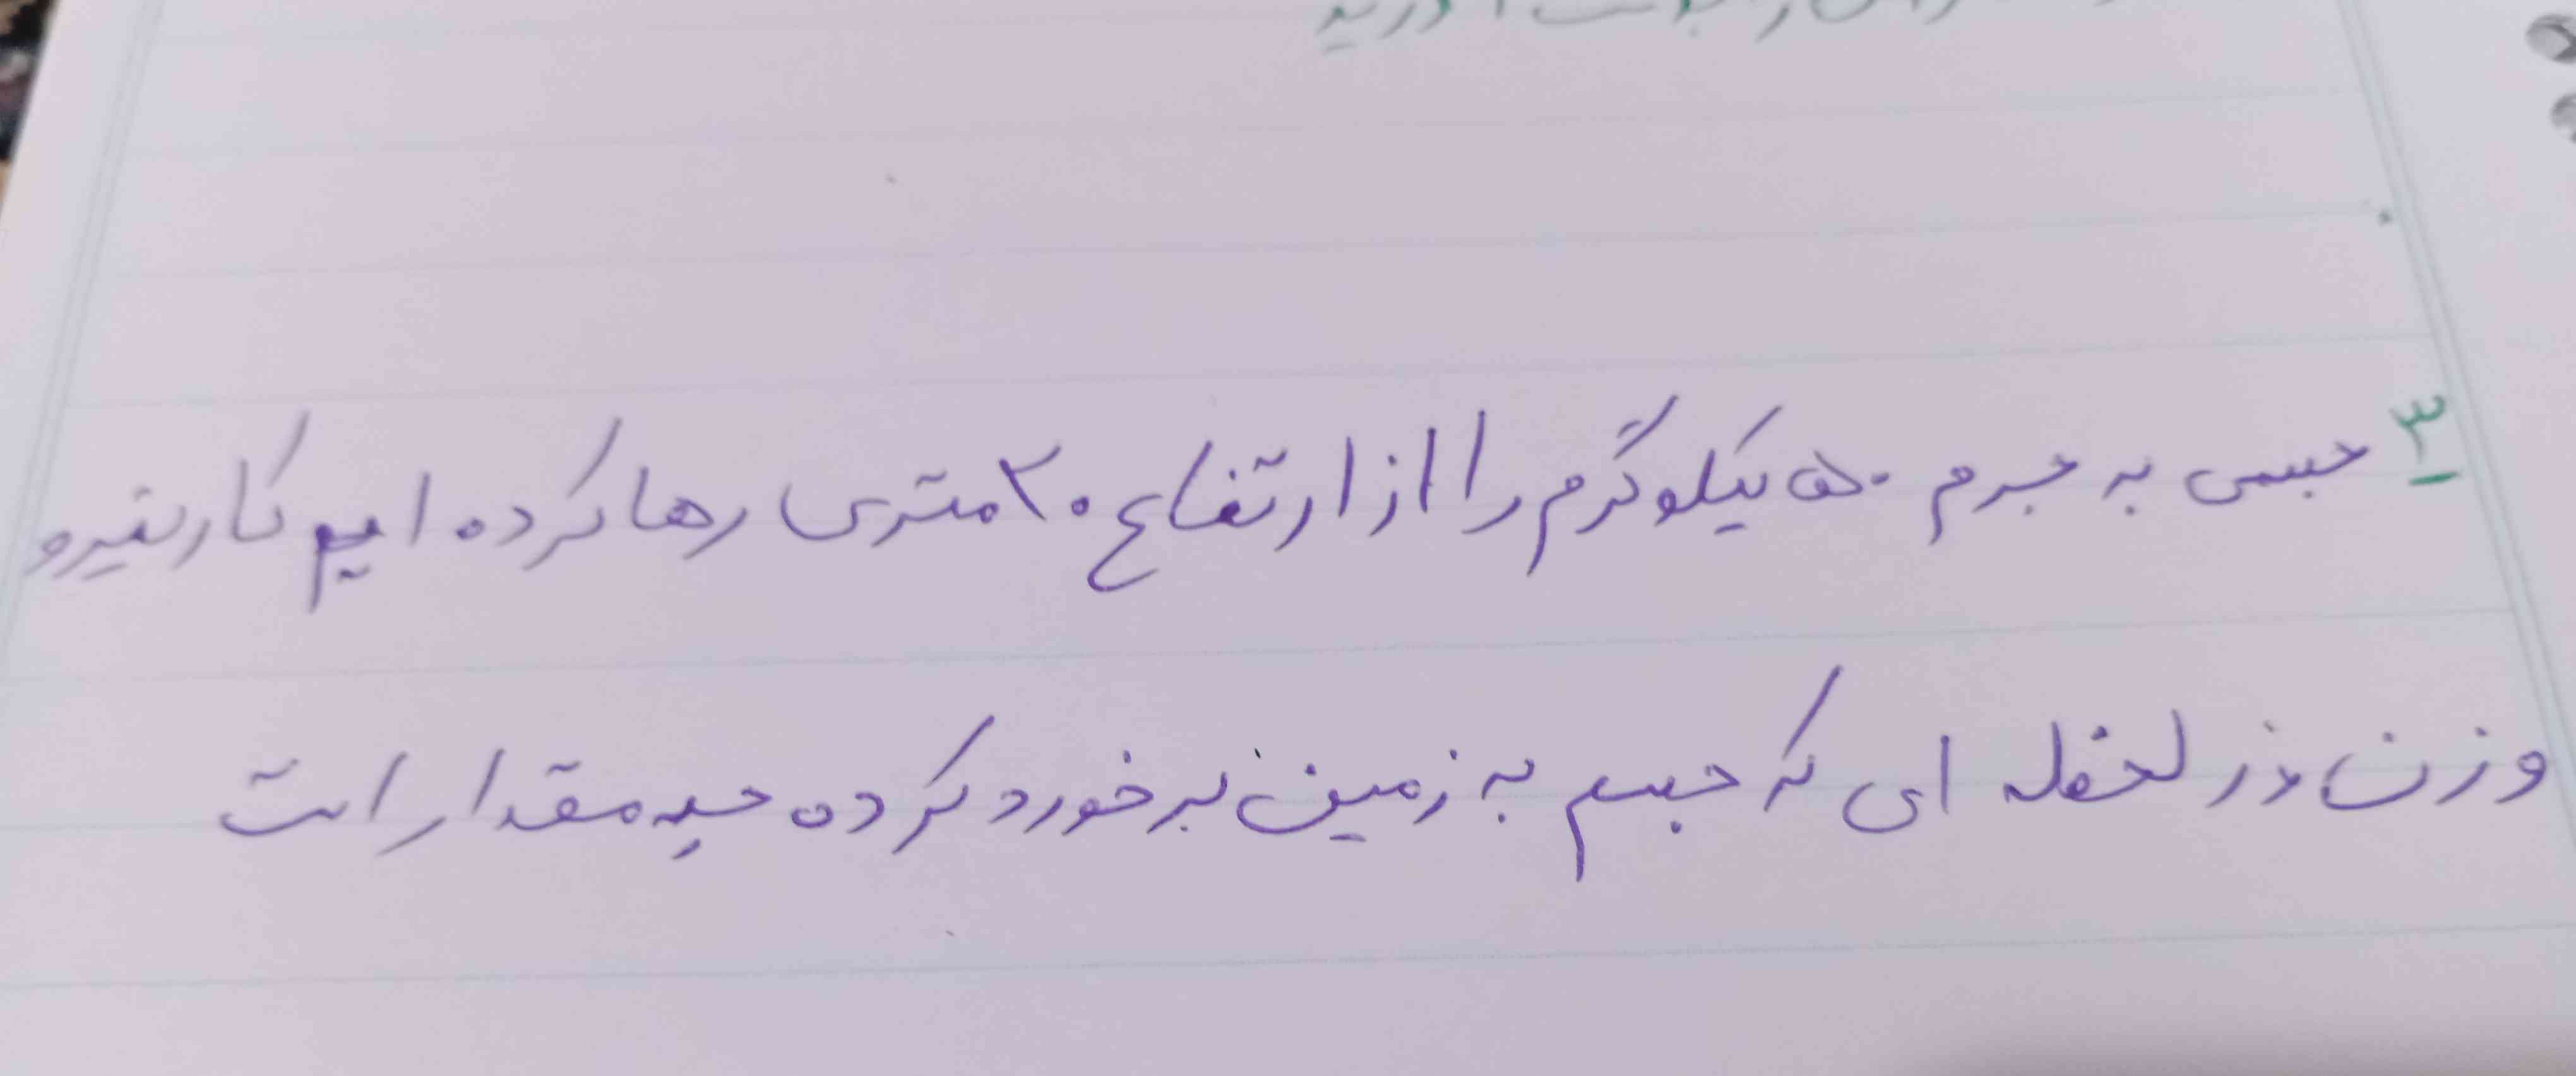 ۳ جسمی به جرم ۵۰ کیلوگرم را از ارتفاع ۲۰ متری رها کرده ایم کار نیرو
وزن در لحظه ای که جسم به زمین برخورد کرده چه مقدار است